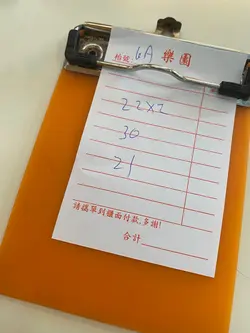 枱號: 6A 樂園
22x2
30
21
請攜單到櫃面付款,多謝!
合計